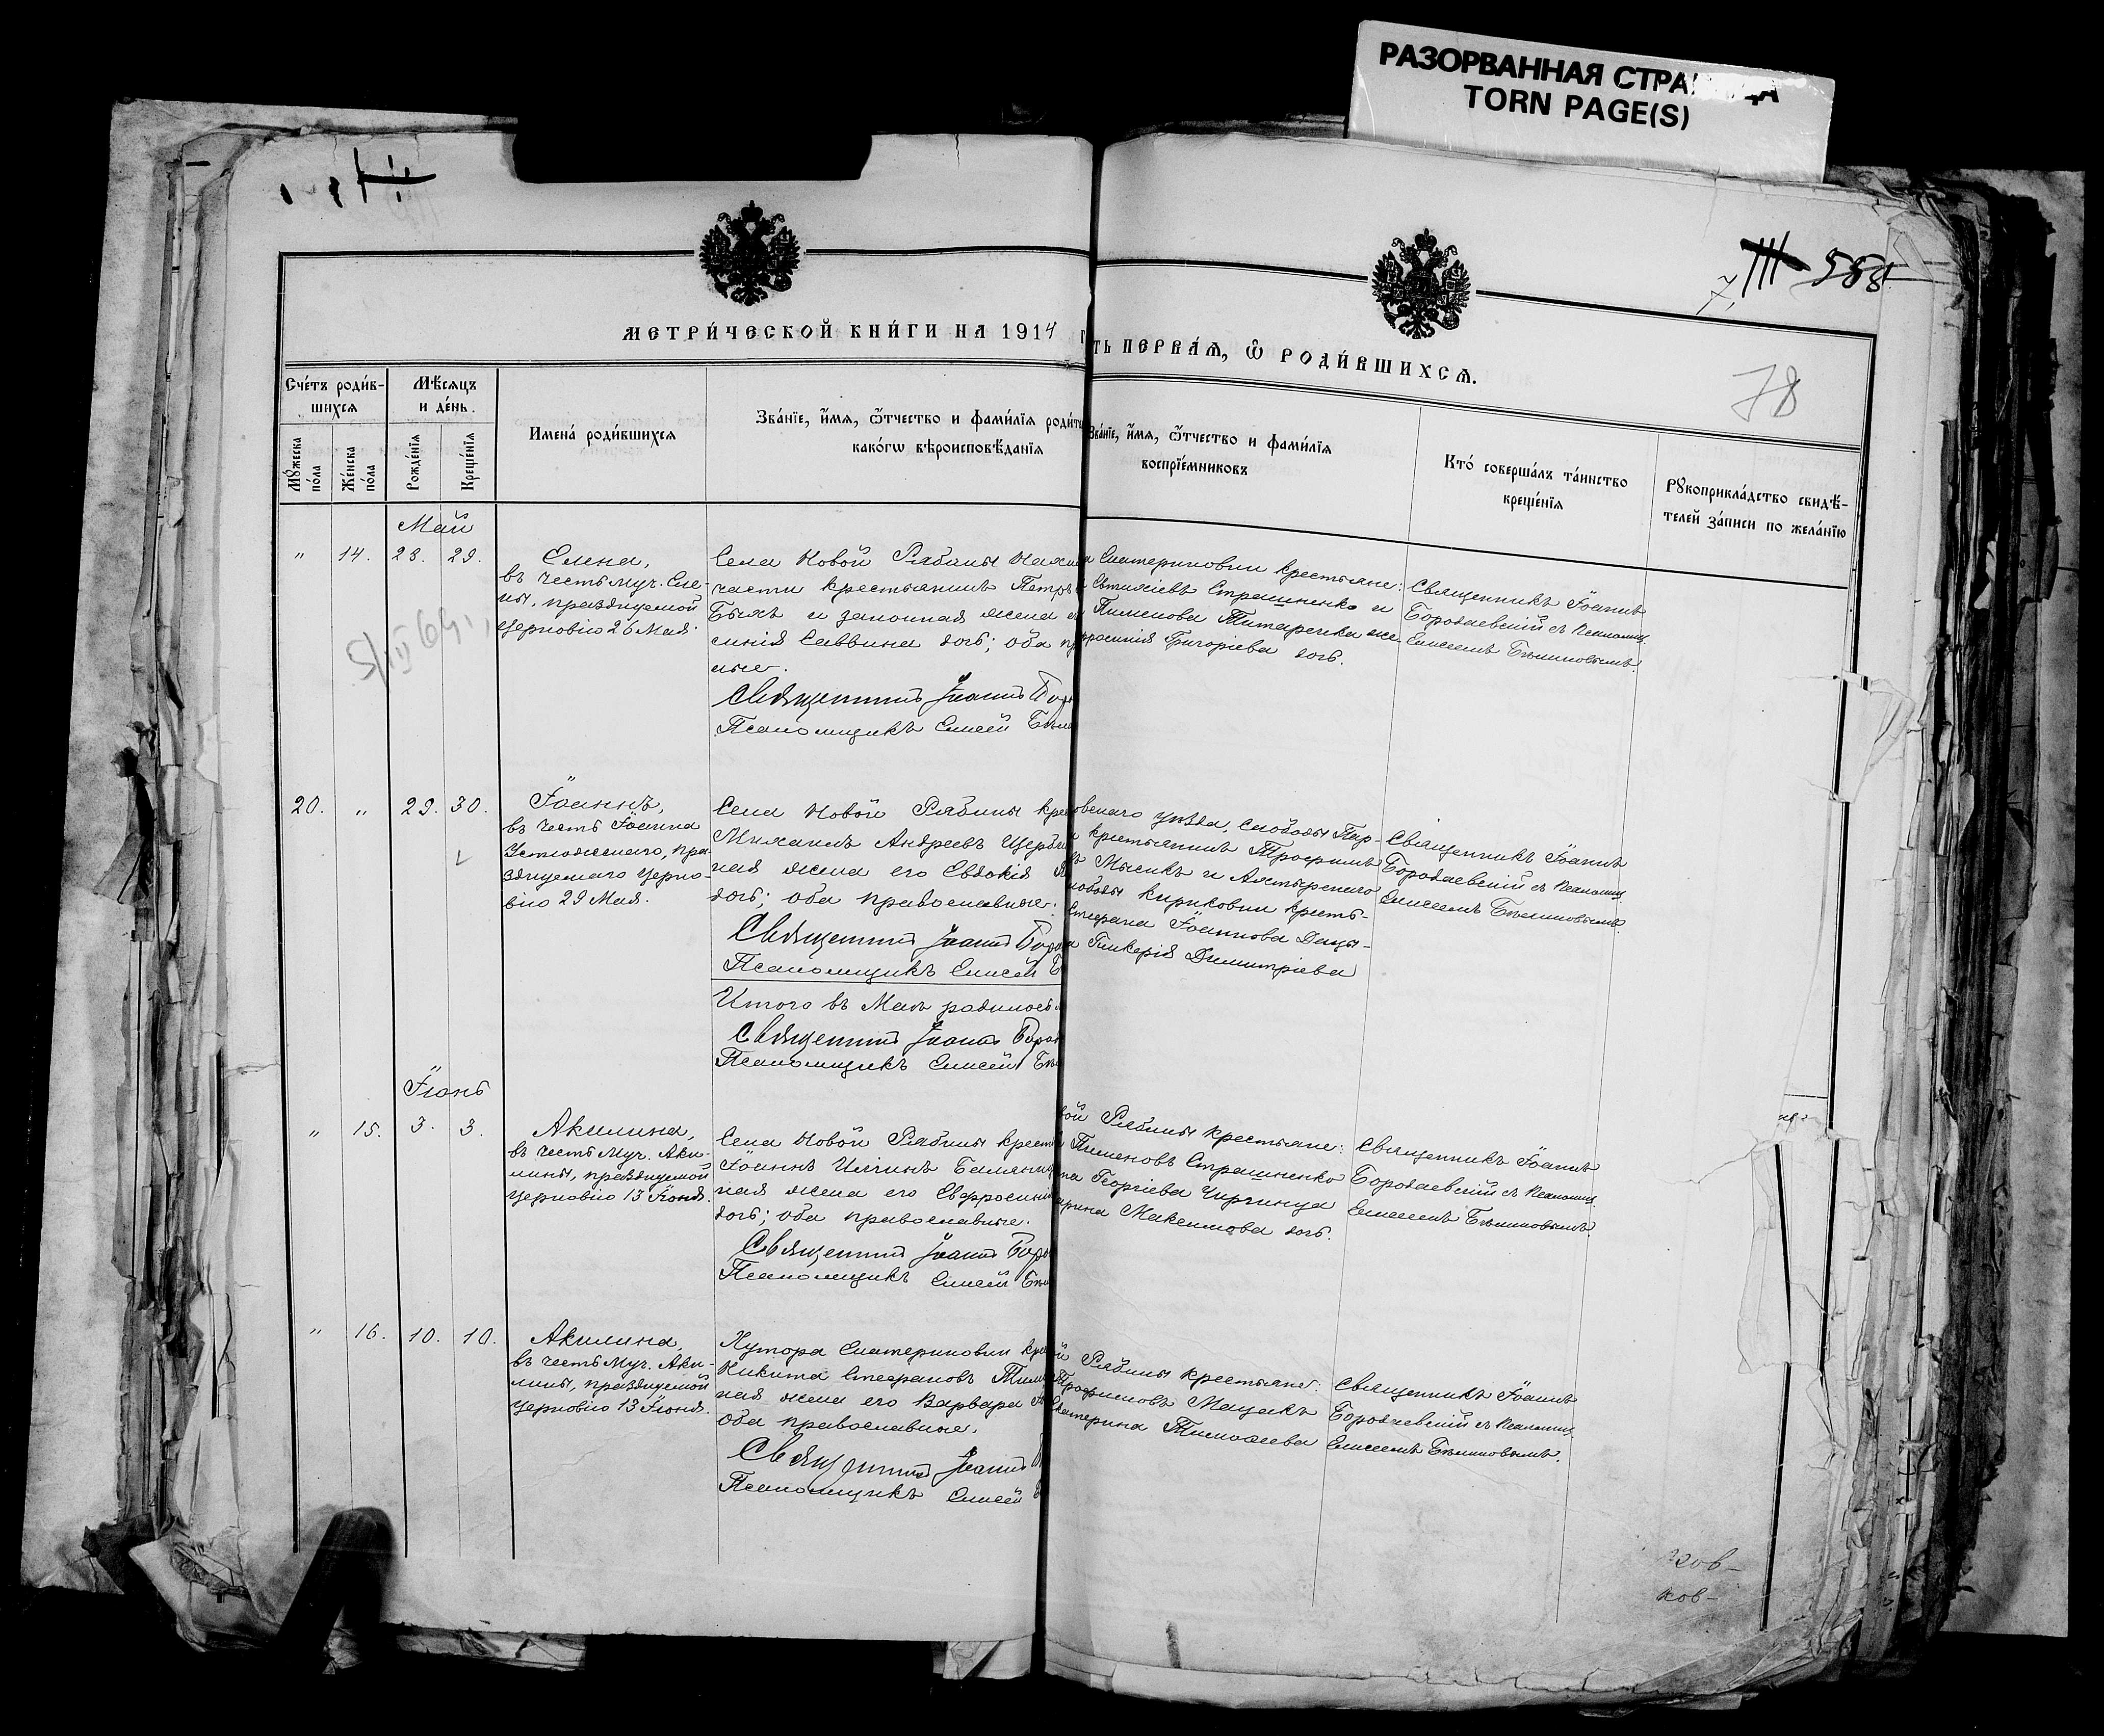 РАЗОРВАННАЯ СТРА
TORN PAGE(S)
558
78
МЕТРИ́ЧЕСКОЙ КНИ́ГИ НА 1914
ть пе́рваѧ, ѡ҆ роди́вшихсѧ.
Сче́тъ роди́в-
шихсѧ
Мꙋ́жеска по́ла
Же́нска по́ла
Мѣ́сѧцъ
и де́нь.
Рожде́нїѧ
Креще́нїѧ
Имена́ роди́вшихсѧ
Зва́нїе, и҆́мѧ, ѻ҆́тчество и фами́лїѧ роди́те
како́гѡ вѣроисповѣ́данїѧ
Зва́нїе, и҆́мѧ, ѻ҆́тчество и фами́лїѧ
воспрїе́мниковъ
Кто́ соверша́лъ та́инство
креще́нїѧ
Рꙋкоприкла́дство свидѣ́-
телей за́писи по жела́нїю
Май
" 14. 28. 29.
Елена,
въ честь муч. Еле-
ны, празднуемой
церковію 26 Мая.
Села Новой Рябины
части крестьянинъ Петръ
Быхъ и законная жена е
синія Саввина дочь; оба пр
ные.
Священникъ Іоаннъ Бор
Псаломщикъ Елисей Бѣли
а Екатериновки крестьяне:
Евтихіевъ Страшненко и
Пименова Титаренка же
фросинія Григоріева дочь.
Священникъ Іоаннъ
Бородаевскій съ псаломщ.
Елисеемъ Бѣлиновымъ.
20. " 29. 30.
Іоаннъ,
въ честь Іоанна
Устюжскаго, пра-
зднуемаго церко-
вію 29 Мая.
Села Новой Рябины кре
Михаилъ Андреевъ Щерби
ная жена его Евдокія
дочь; оба православные.
Священникъ Іоаннъ Боро
Псаломщикъ Елисей Б
овскаго уѣзда, слободы Пар-
крестьянинъ Трофимъ
Мысикъ и Ахтырскаго
лободы Кириковки кресть-
Стефана Іоаннова Дацы-
а Гликерія Димитріева
Священникъ Іоаннъ
Бородаевскій съ псаломщ.
Елисеемъ Бѣлиновымъ.
Итого въ Маѣ родилось
Священникъ Іоаннъ Боро
Псаломщикъ Елисей Бѣ
Іюнь
" 15. 3. 3.
Акилина,
въ честь Муч. Аки-
лины, празднуемой
церковію 13 Іюня.
Села Новой Рябины крест
Іоаннъ Ильинъ
ная жена его Евфросинія
дочь; оба православные.
Священникъ Іоаннъ Боро
Псаломщикъ Елисей Бѣл
вой Рябины крестьяне:
Пименовъ Страшненко
на Георгіева Чирчинца
арина Максимова дочь.
Священникъ Іоаннъ
Бородаевскій съ псаломщ.
Елисеемъ Бѣлиновымъ.
" 16. 10. 10.
Акилина,
въ честь Муч. Аки-
лины, празднуемой
церковію 13 Іюня.
Хутора Екатериновки кре
Никита Стефановъ
ная жена его Варвара
оба православные.
Священникъ Іоаннъ
Псаломщикъ Елисей Б
ой Рябины крестьяне:
Трофимовъ Мацакъ
Екатерина Тимофеева
Священникъ Іоаннъ
Бородаевскій съ псаломщ.
Елисеемъ Бѣлиновымъ.
ков-
ков-